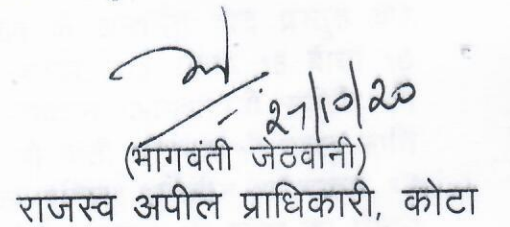 27/10/20
(भागवंती जेठवानी)
राजस्व अपील प्राधिकारी, कोटा